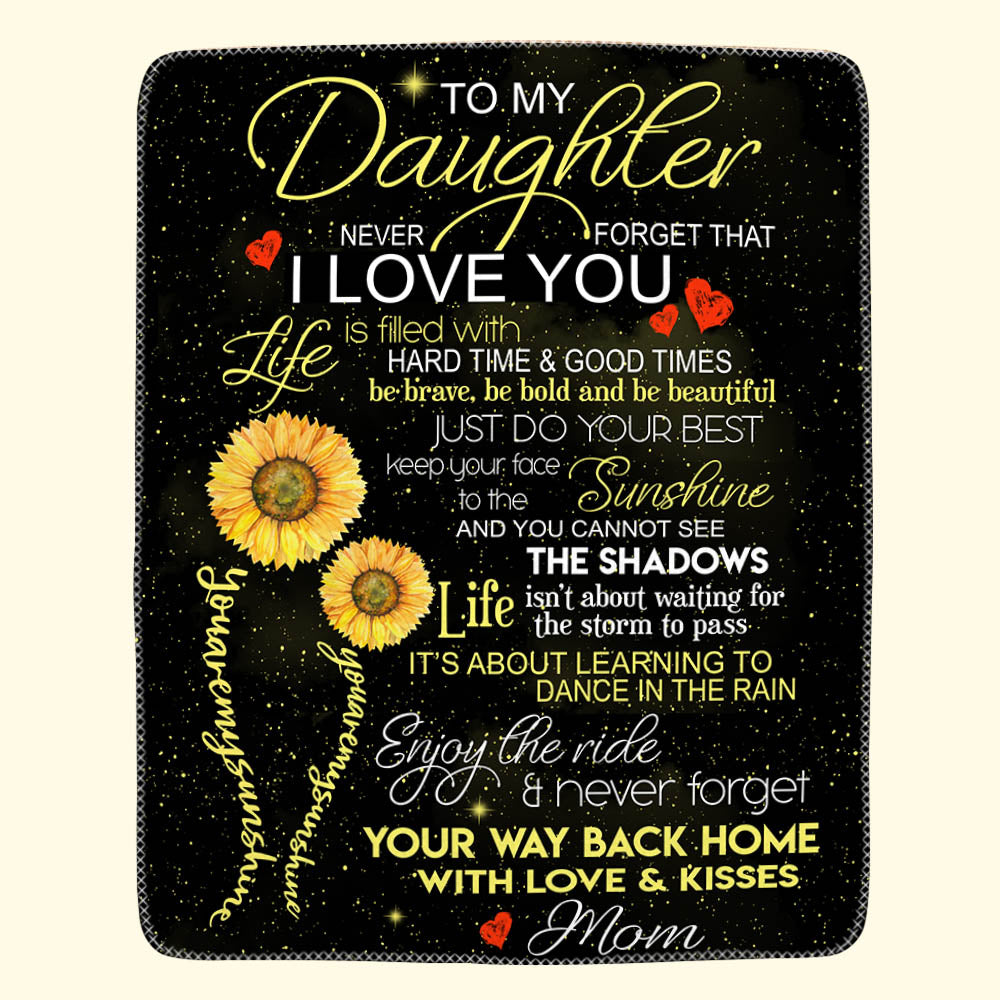 TO MY
Daughter
NEVER FORGET THAT
I LOVE YOU
Life is filled with
HARD TIME & GOOD TIMES
be brave, be bold and be beautiful
JUST DO YOUR BEST
keep your face
to the Sunshine
AND YOU CANNOT SEE
THE SHADOWS
Life isn't about waiting for
the storm to pass
IT'S ABOUT LEARNING TO
DANCE IN THE RAIN
Enjoy the ride
& never forget
YOUR WAY BACK HOME
WITH LOVE & KISSES
Mom
youaremysunshine
youaremysunshine